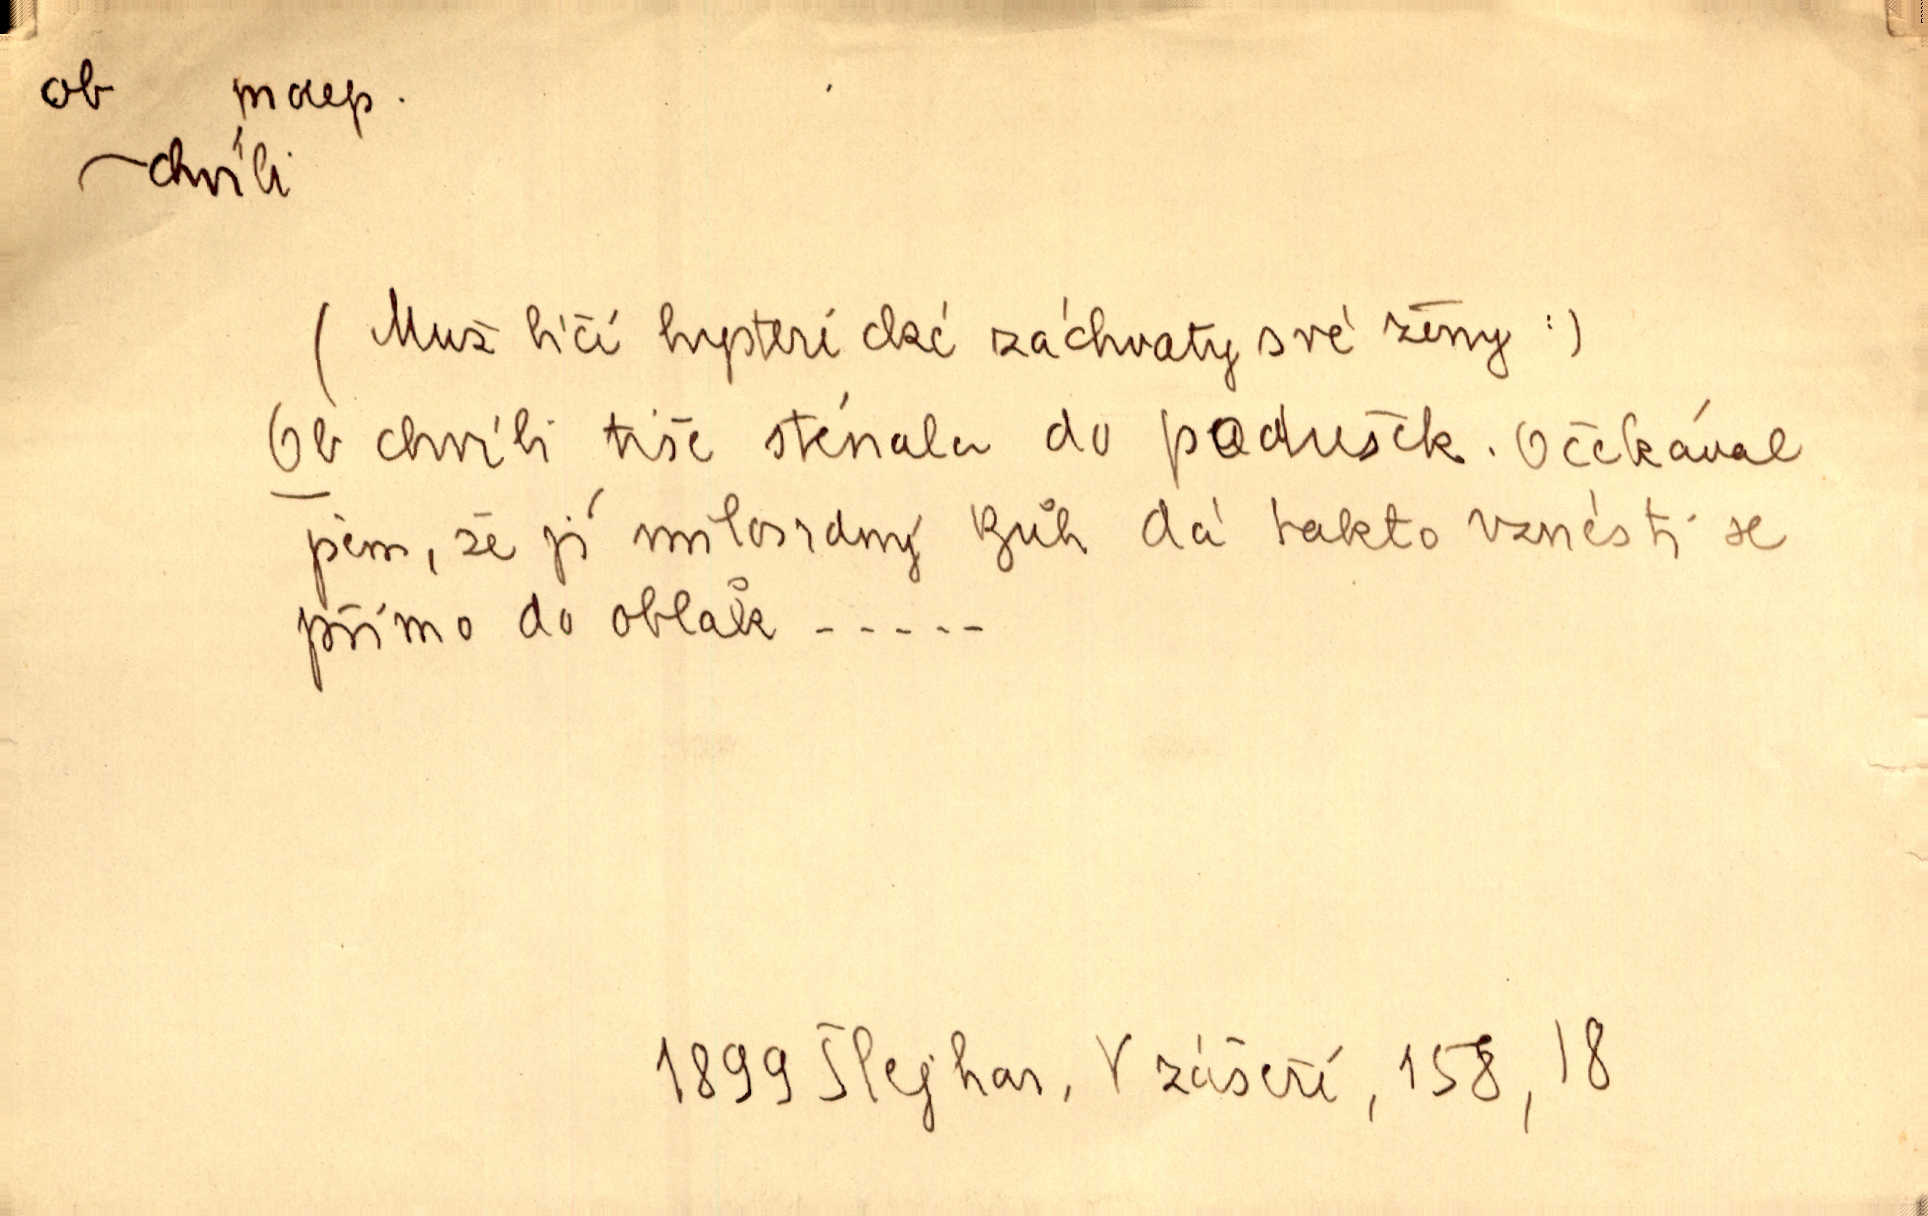 ob přep.
~chvíli
(Muž líčí hysterické záchvaty své ženy :)
Ob chvíli tiše sténala do podušek. Očekával
jsem, že jí milosrdný Bůh dá takto vznésti se
přímo do oblak -----
1899 Šlejhar, V zášeří, 158, 18